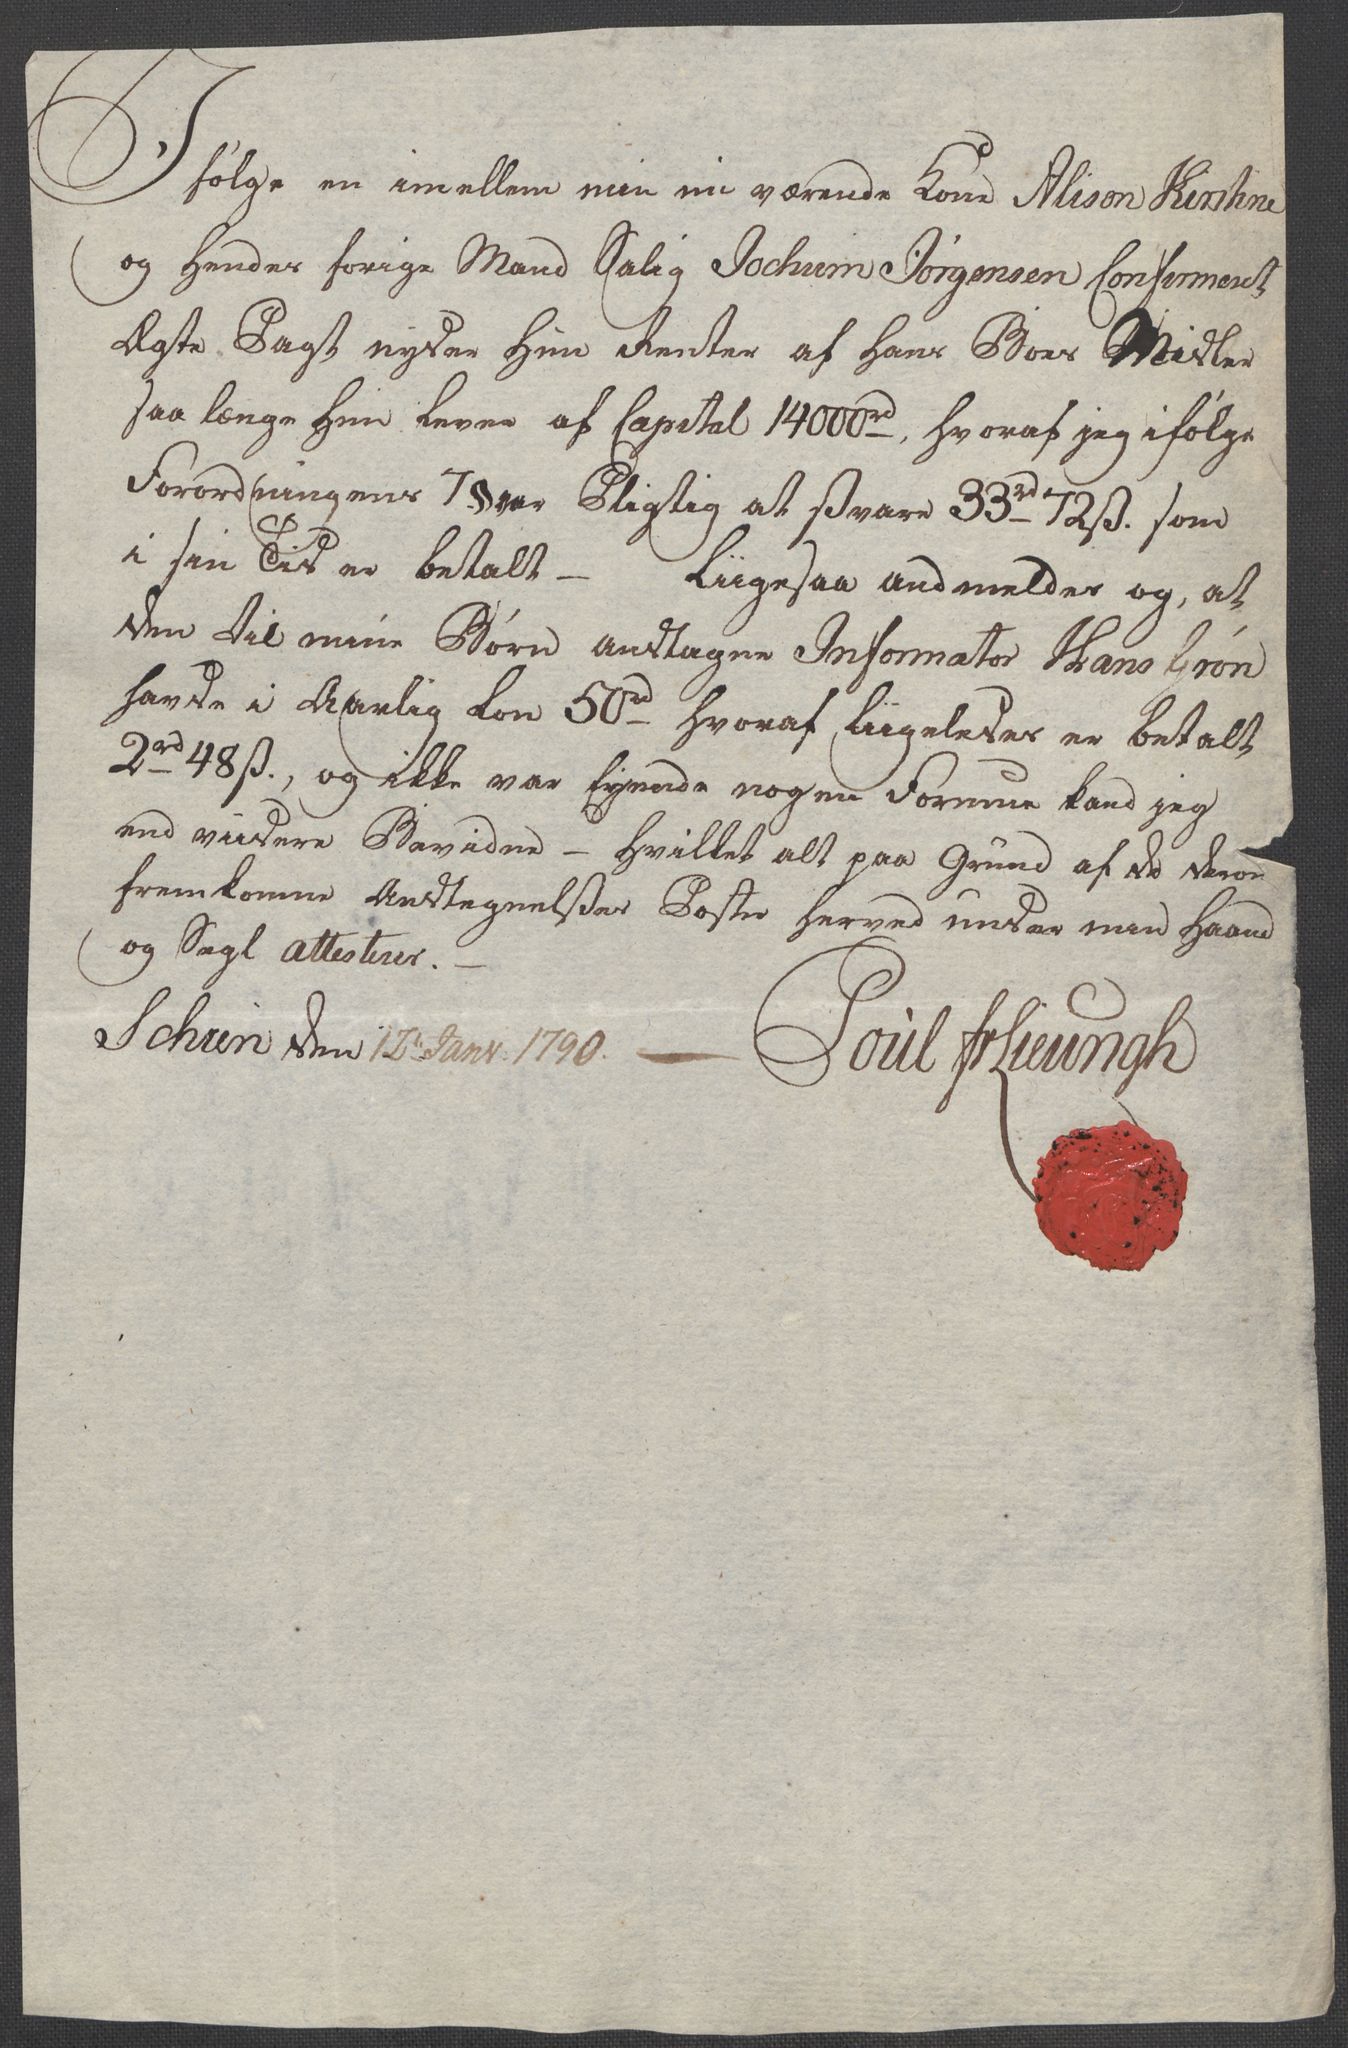 Ifølge en imellem min nu værende Kone Alison Kirstine
og Hendes forige Mand Salig Jochum Jörgensen Confirmert
Ægte Pagt nyder Hun Renter af Hans Boes Midler
saa længe Hun lever af Capital 14000rd, hvoraf jeg ifølge
Forordningens 7 § var Pligtig at svare 33rd 72ß. som
i sin Tid er betalt – Liigesaa andmeldes og, at
den til mine Børn andtagne Informator Hans Grøn
havde i Aarlig Løn 50rd hvoraf liigeledes er betalt
2rd 48ß., og ikke var Eyende nogen Formue kand jeg
end viidere Bevidne – Hvilket alt paa Grund af de derom
fremkomne Andtegnelsser Poster herved under min Haand
og Segl attesterer. –
Schien den 12t Janv. 1790. — Poul Lieungh